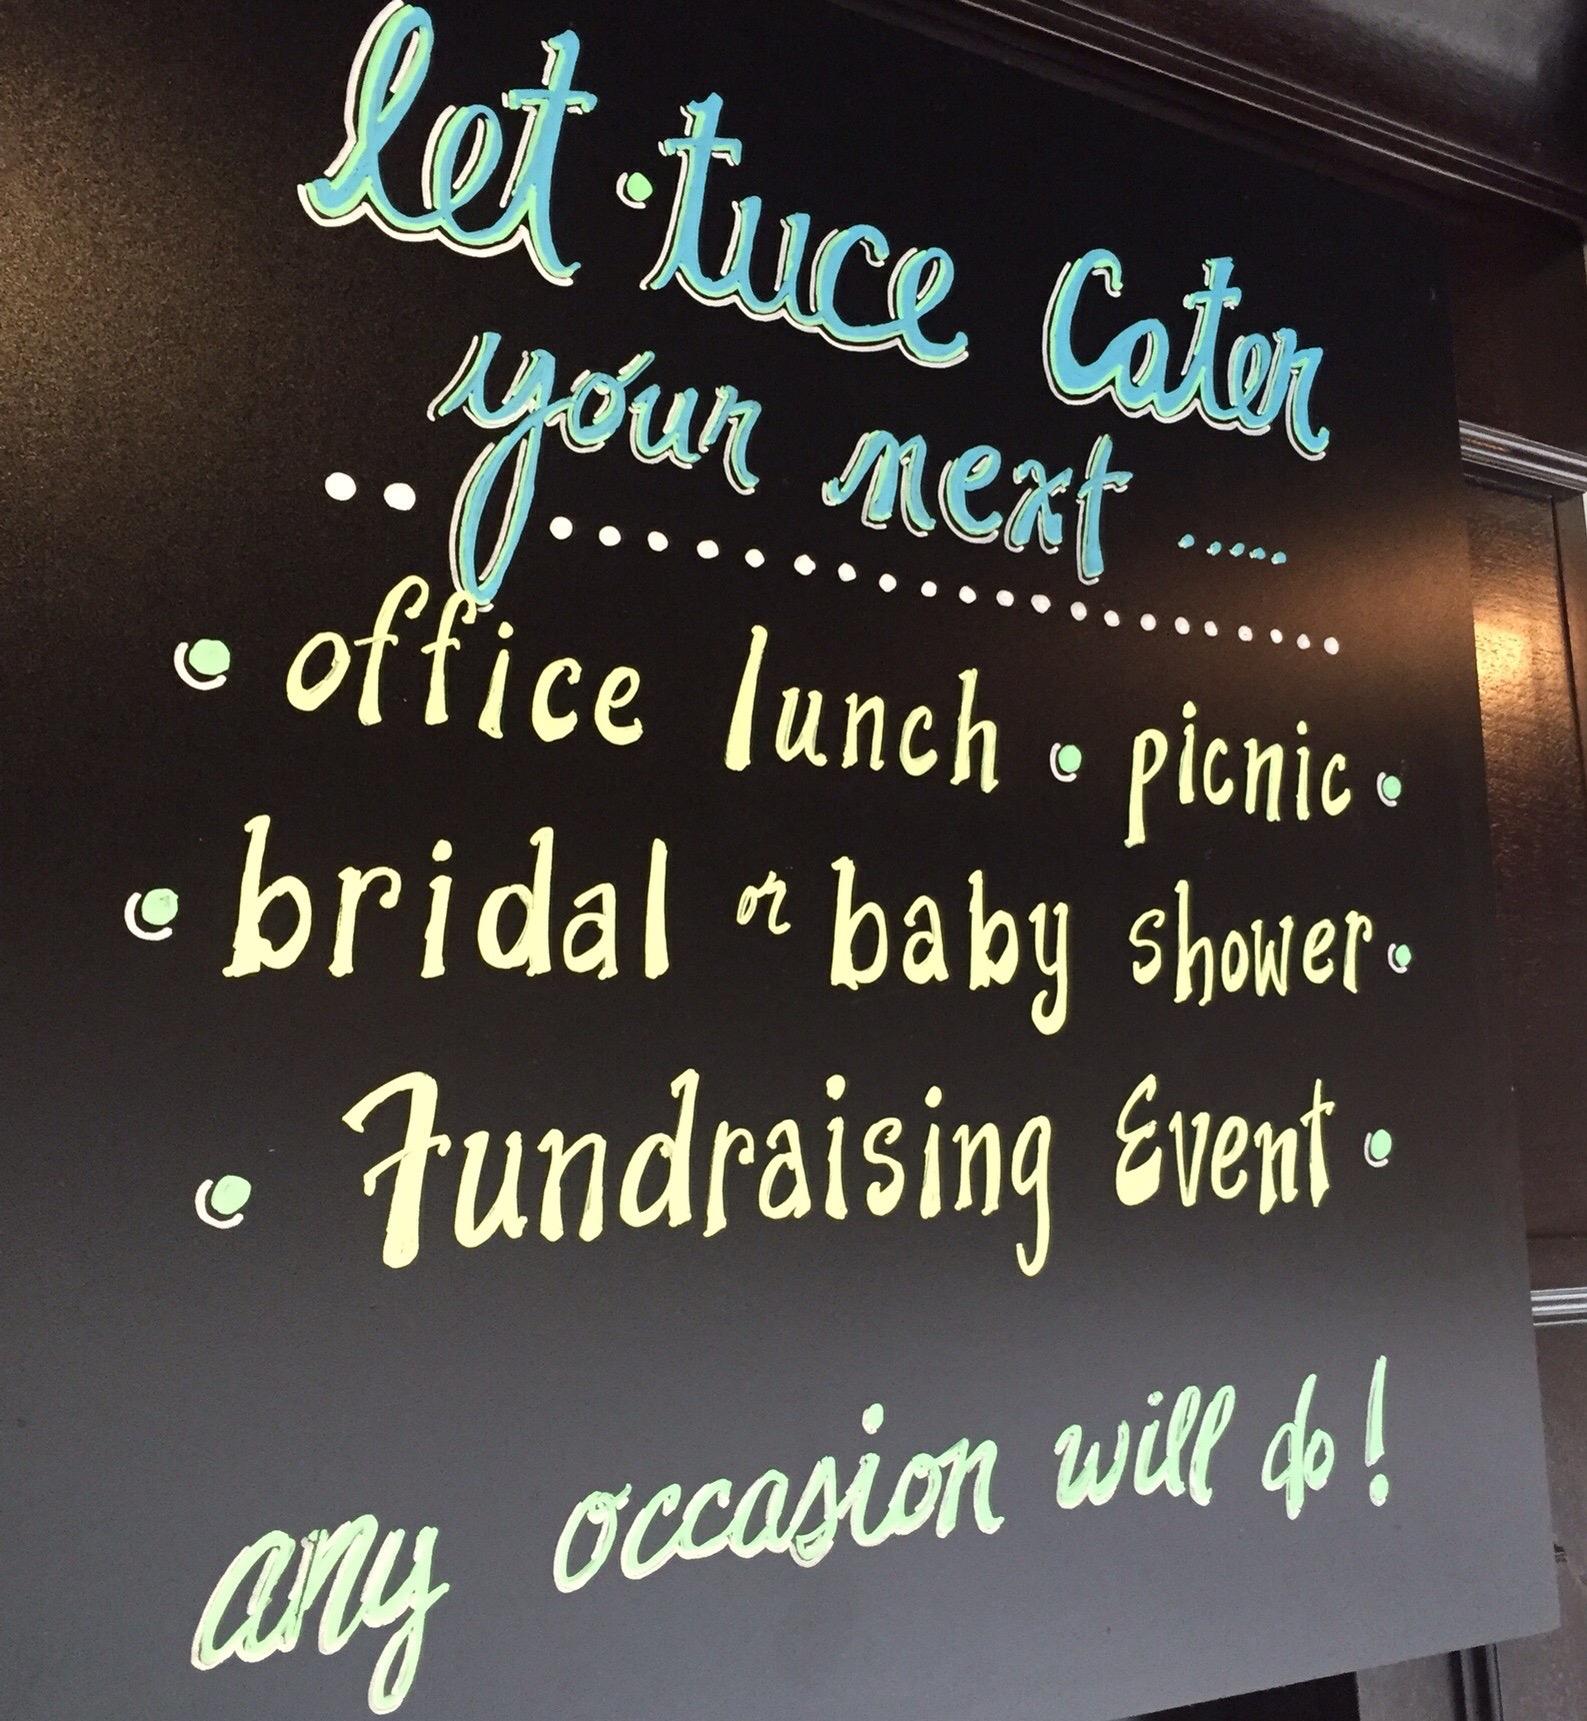 let·tuce Cater
your next .....
• office lunch • picnic •
• bridal or baby shower •
• Fundraising Event •
any occasion will do!